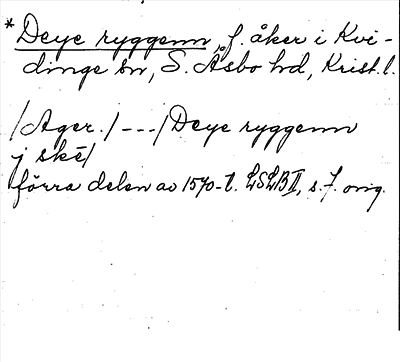 * Deye ryggenn, f. åker i Kvi-
dinge sn, S. Åsbo hd, Krist. l.
/Ager./ --- / Deye ryggenn
j skè/
förra delen av 1570-t. LSLB II, s. 7. orig.